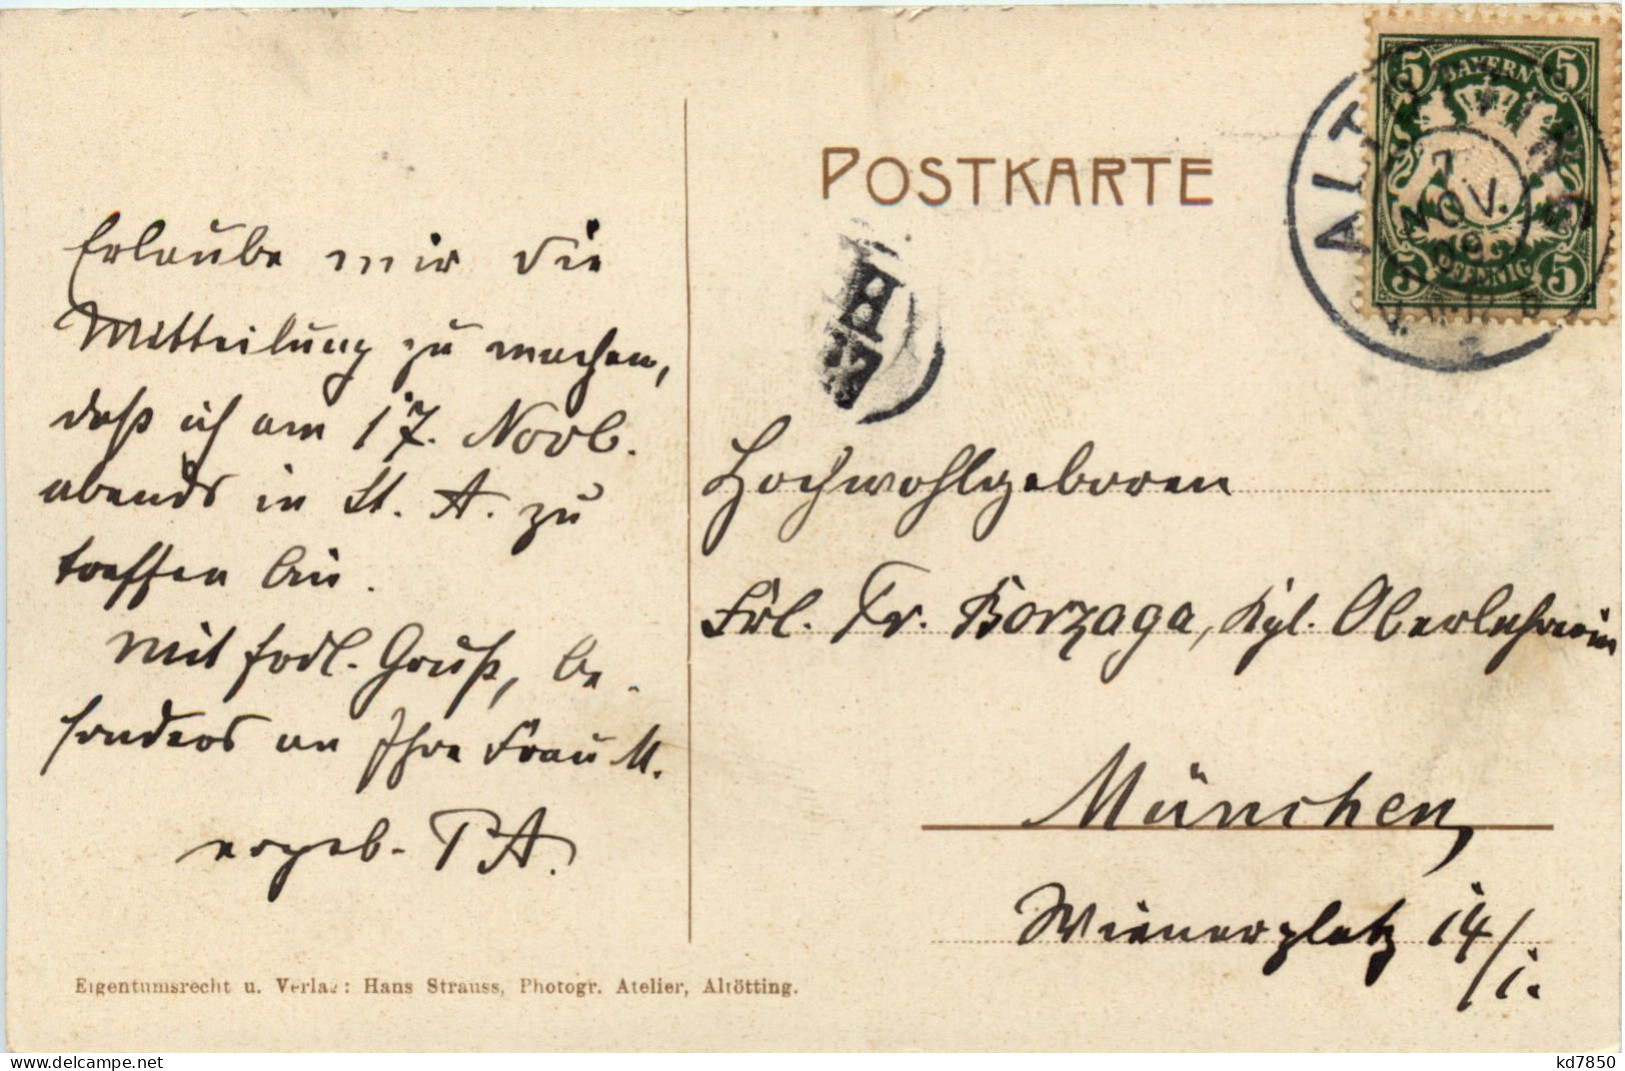 POSTKARTE
BAYERN
5 5
ALTÖTTING
7
NOV.
09
PFENNIG
5 5
Erlaube mir die
Mitteilung zu machen,
daß ich am 17. Novb.
abends in St. A. zu
treffen bin.
Mit frdl. Gruß, be-
sonders an Ihre Frau M.
ergeb. P A.
Hochwohlgeboren
Frl. Fr. Borzaga, Kgl. Oberlehrerin
München,
Wienerplatz 14/I.
Eigentumsrecht u. Verlag: Hans Strauss, Photogr. Atelier, Altötting.
https://www.delcampe.net
kd7850